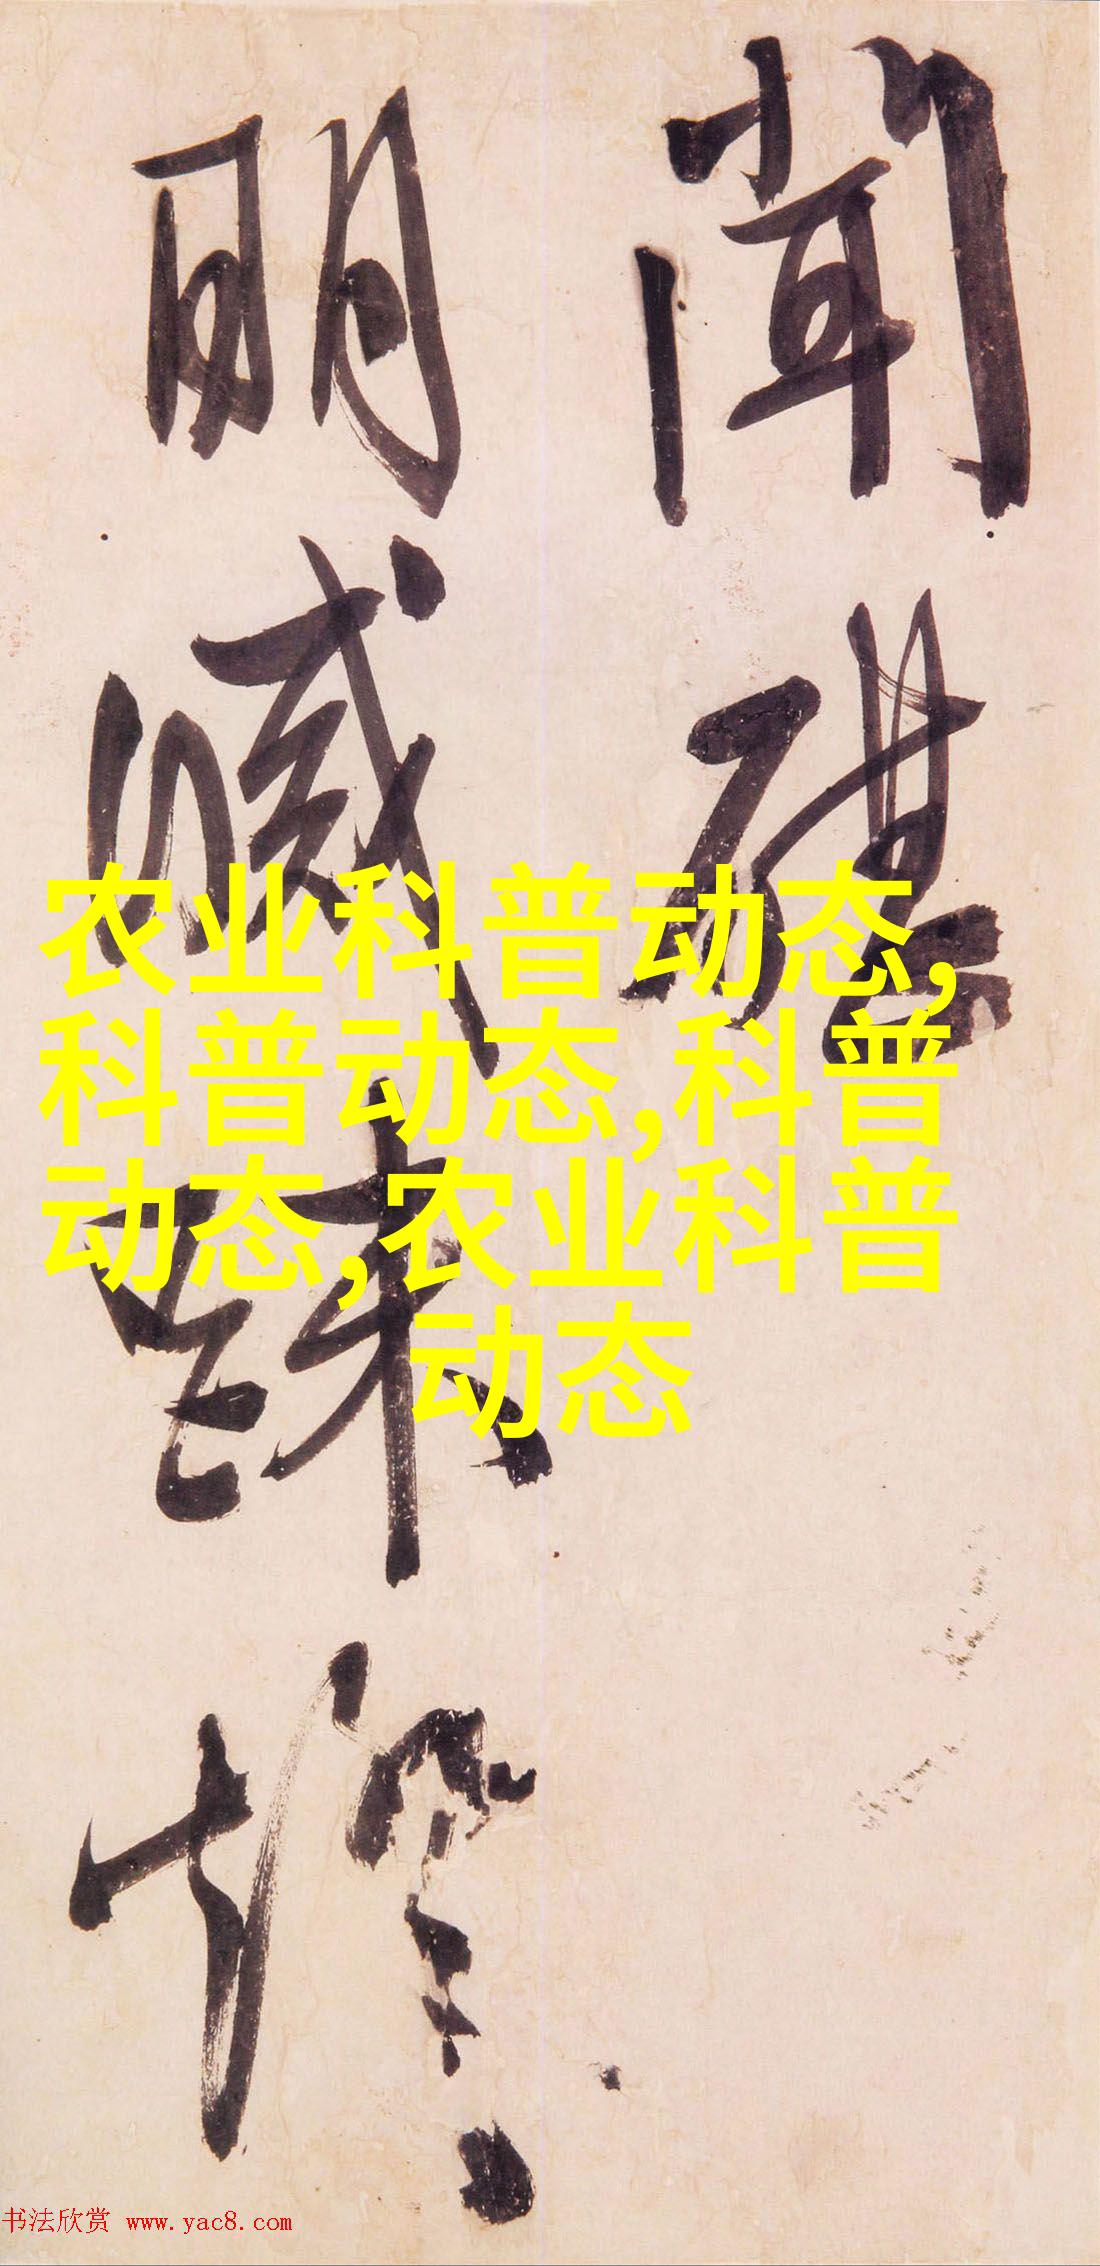 聞
明滅踈燈
农业科普动态,
科普动态,科普
动态,农业科普
动态
书法欣赏 www.yac8.com